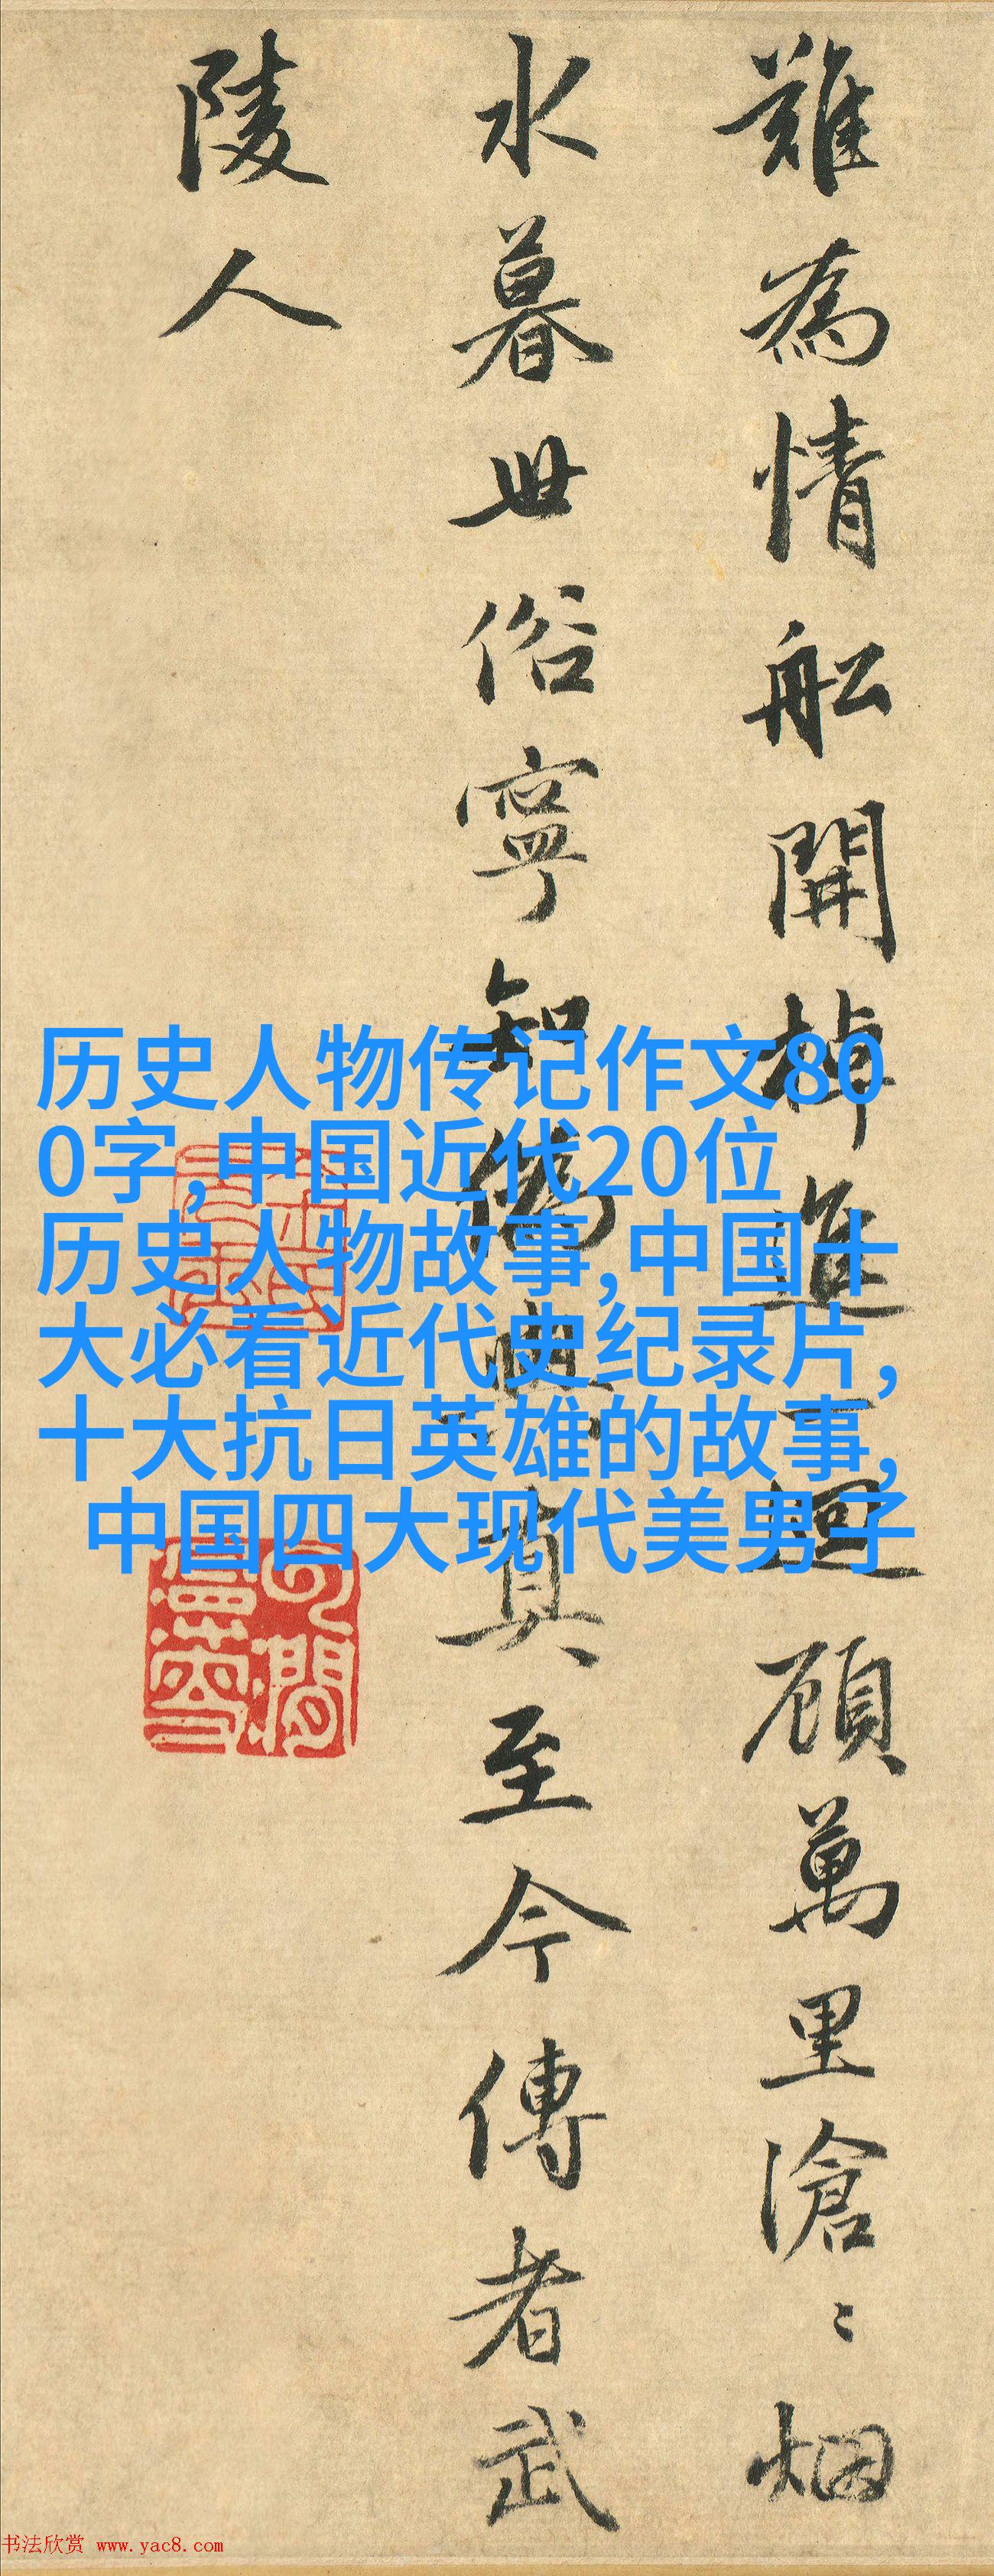 難為情船開棹進一迴顧萬里滄〻烟
水暮世俗寧知偽與真至今傳者武
陵人
历史人物传记作文80
0字,中国近代20位
历史人物故事,中国十
大必看近代史纪录片,
十大抗日英雄的故事,
中国四大现代美男子
书法欣赏 www.yac8.com